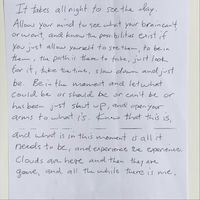 It takes all night to see the day.
Allow your mind to see what your brain can't
or won't, and know the possibilities exist if
you just allow yourself to see them, to be in
them, the path is there to take, just look
for it, take the time, slow down and just
be. Be in the moment and let what
could be or should be or can't be or
has been just shut up, and open your
arms to what is. Know that this is,
and what is in this moment is all it
needs to be, and experience the experience.
Clouds are here and then they are
gone, and all the while there is me.